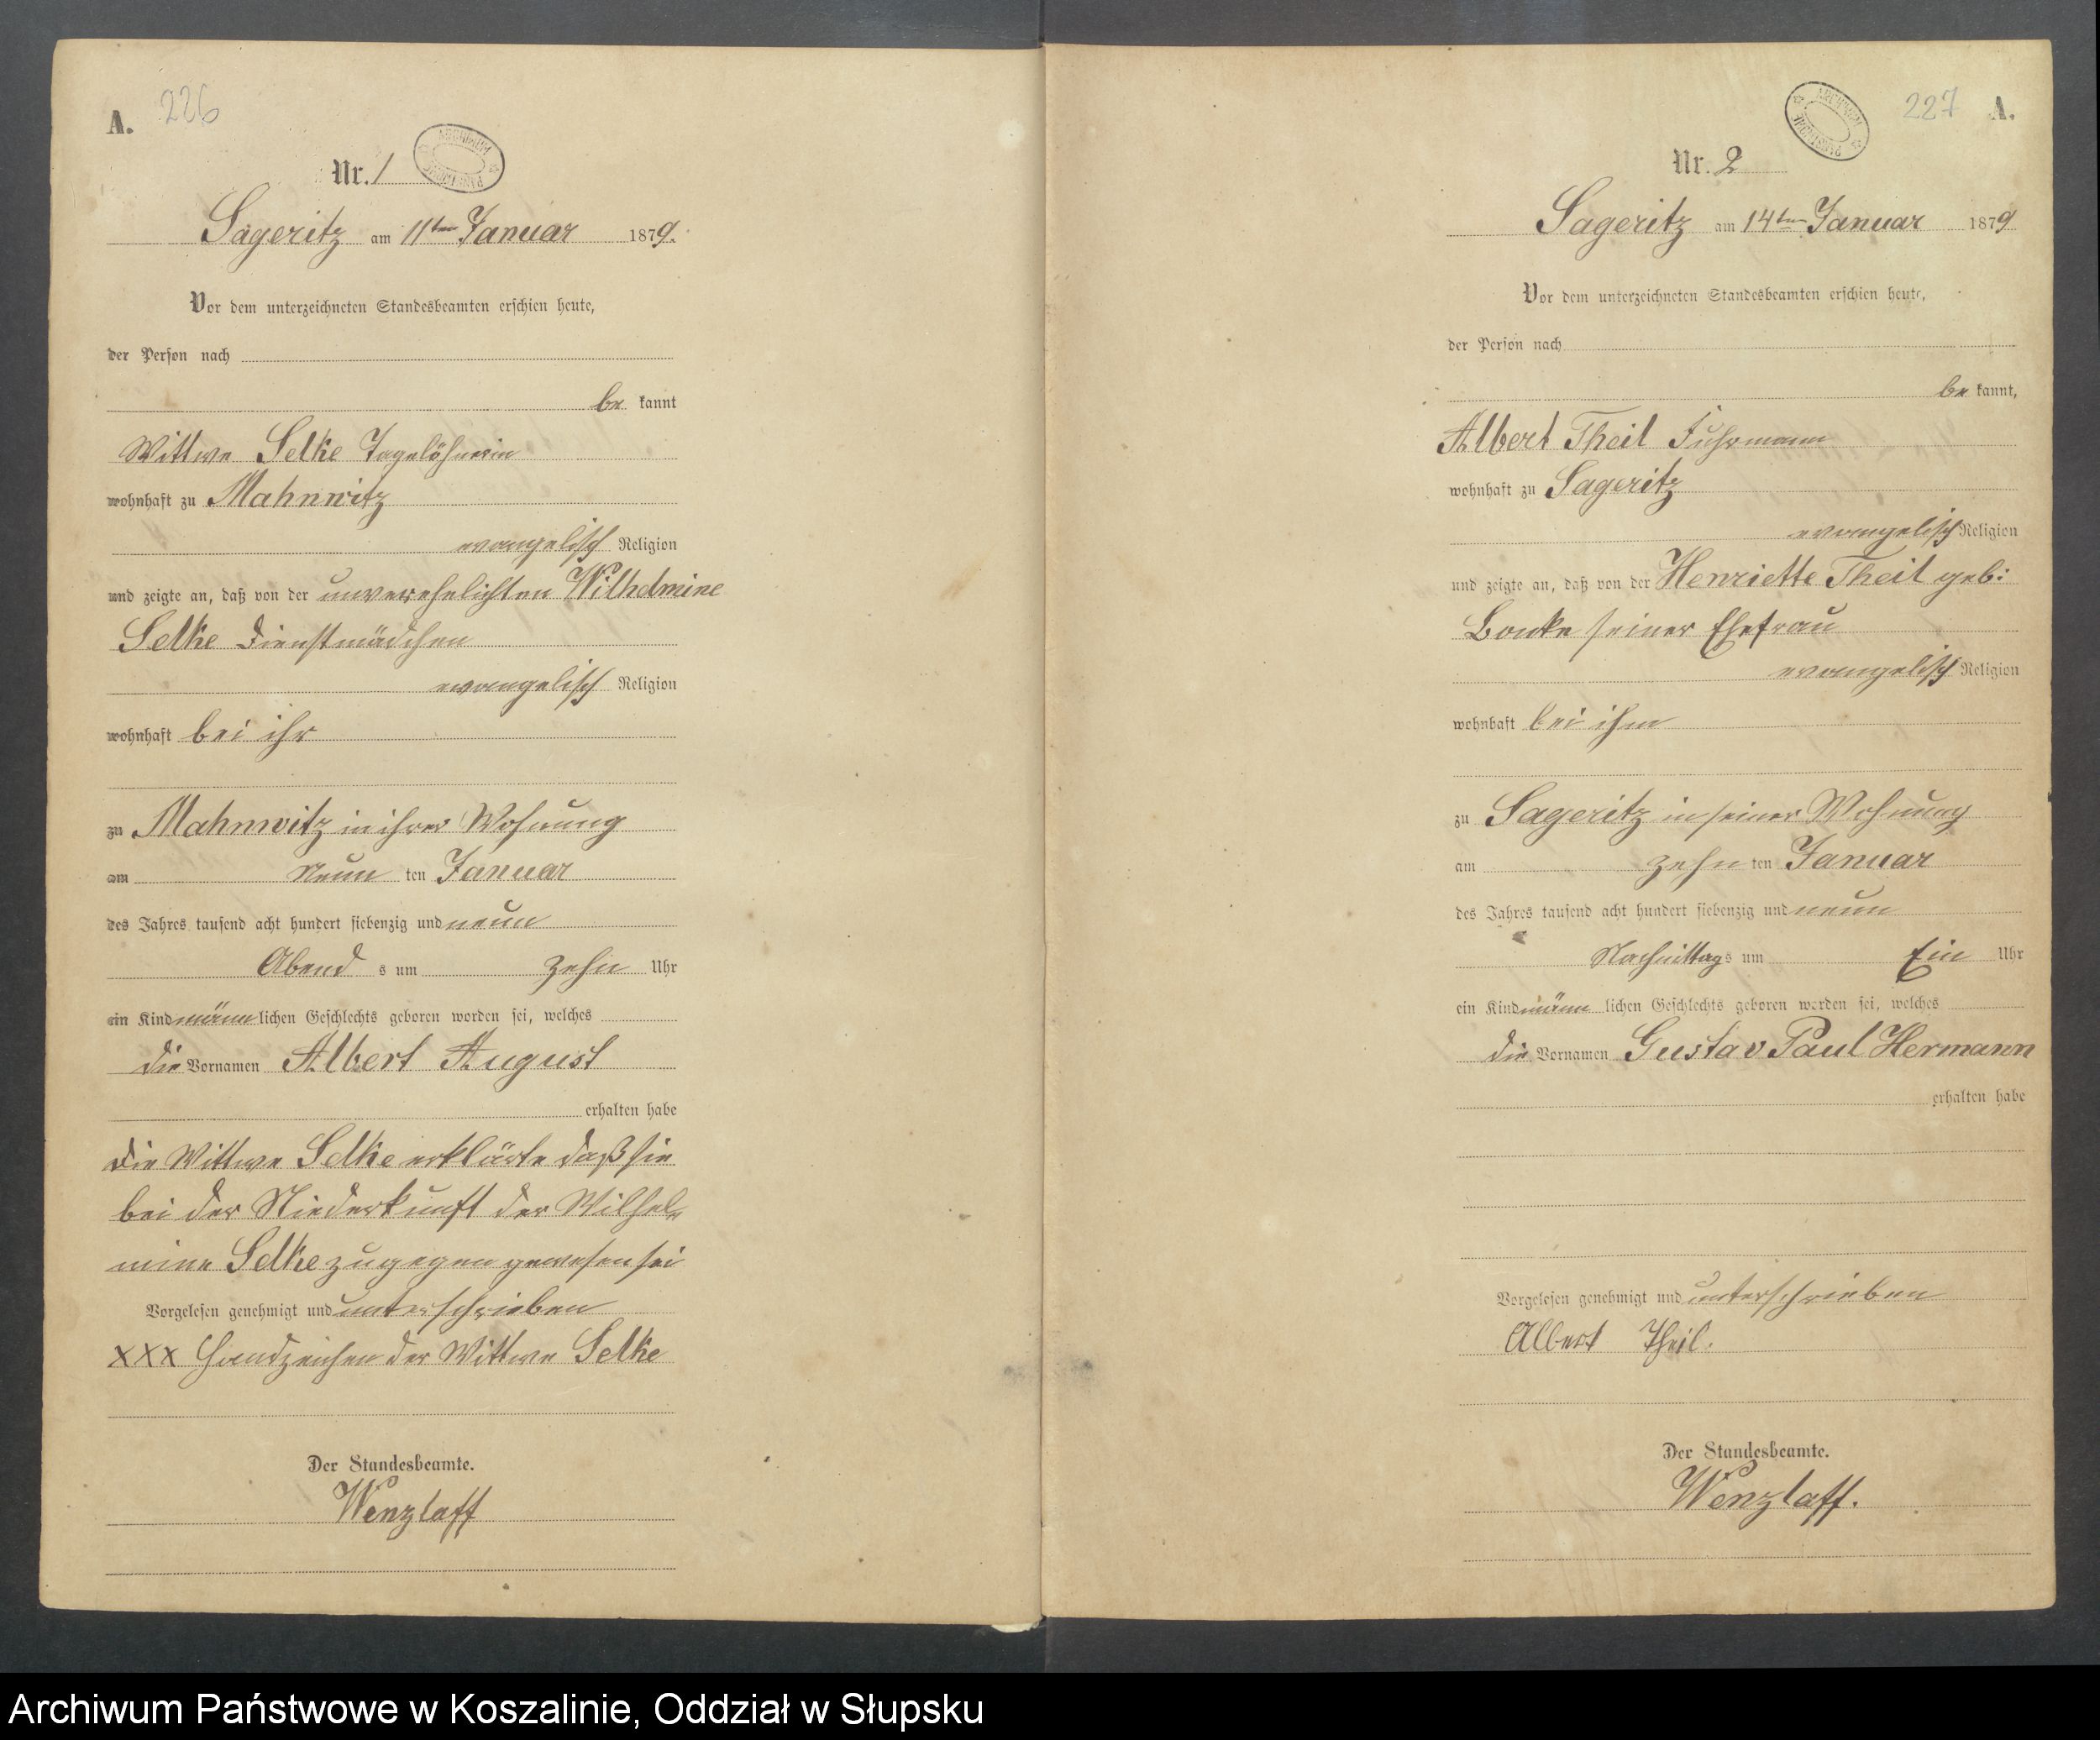 A. 226
Nr. 1
Sageritz am 11ten Januar 1879.
Vor dem unterzeichneten Standesbeamten erschien heute,
der Person nach
be kannt
Wittwe Selke Tagelöhnerin
wohnhaft zu Mahnwitz
evangelisch Religion
und zeigte an, daß von der unverehelichten Wilhelmine
Selke Dienstmädchen
evangelisch Religion
wohnhaft bei ihr
zu Mahnwitz in ihrer Wohnung
am Neun ten Januar
des Jahres tausend acht hundert siebenzig und neun
Abend s um zehn Uhr
ein Kind männ lichen Geschlechts geboren worden sei, welches
die Vornamen Albert August
erhalten habe
Die Wittwe Selke erklärte daß sie
bei der Niederkunft der Wilhel-
mine Selke zugegen gewesen sei
Vorgelesen genehmigt und unterschrieben
XXX Handzeichen der Wittwe Selke
Der Standesbeamte.
Wenzlaff
227 A.
Nr. 2
Sageritz am 14ten Januar 1879
Vor dem unterzeichneten Standesbeamten erschien heute,
der Person nach
be kannt,
Albert Theil Fuhrmann
wohnhaft zu Sageritz
evangelisch Religion
und zeigte an, daß von der Henriette Theil geb:
seiner Ehefrau
evangelisch Religion
wohnhaft bei ihm
zu Sageritz in seiner Wohnung
am zehn ten Januar
des Jahres tausend acht hundert siebenzig und neun
Nachmittag s um Ein Uhr
ein Kind männ lichen Geschlechts geboren worden sei, welches
die Vornamen Gustav Paul Hermann
erhalten habe
Vorgelesen genehmigt und unterschrieben
Albert Theil.
Der Standesbeamte.
Wenzlaff.
Archiwum Państwowe w Koszalinie, Oddział w Słupsku